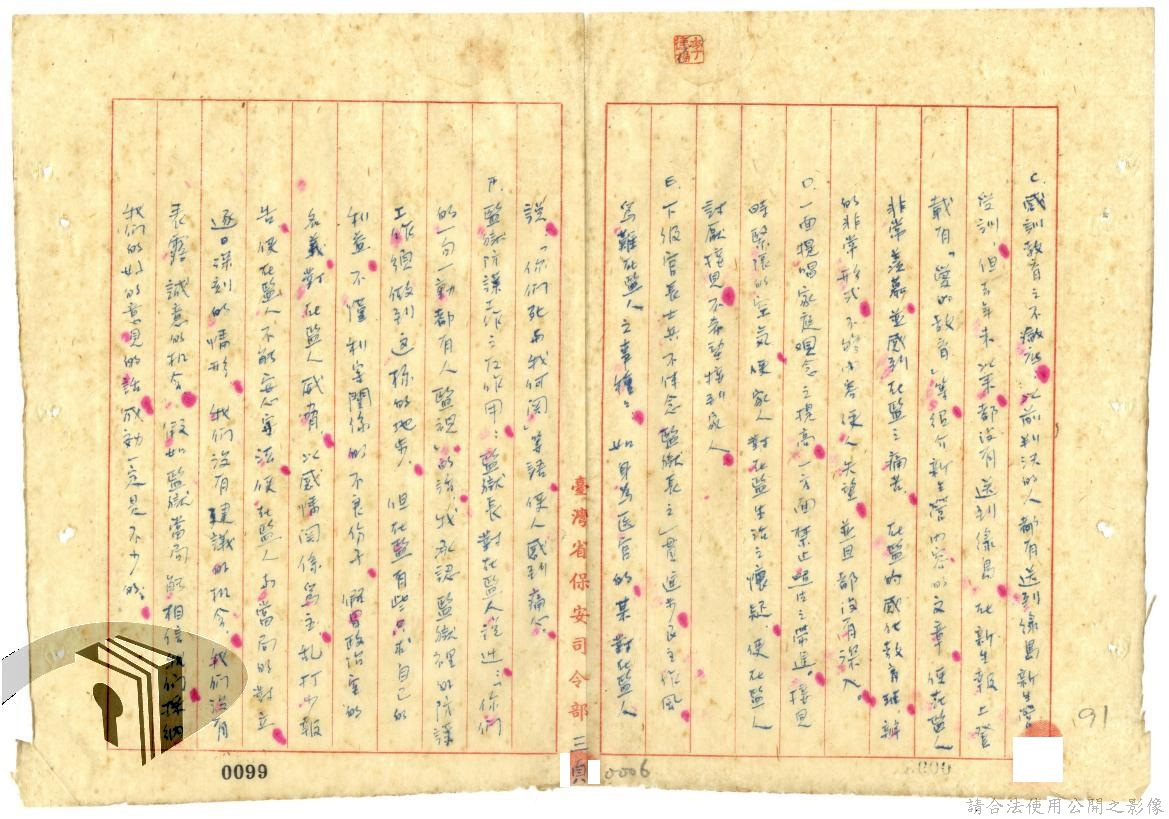 C. 感訓教育之不徹底：以前判決的人都有送到綠島新生營
受訓，但去年末以來都沒有送到綠島，在新生報上登
載有「愛的教育」等紹介新生營內容的文章，使在監人
非常羨慕並感到在監之痛苦。在監內感化教育雖辦
的非常形式，不的小害使人失望，並且都沒有深入。
D. 一面提唱家庭观念之提高，一方面禁止 之帶進。接見
時緊張的空气使家人對在監生活之懷疑，使在監人
討厭接見不希望接到家人
E. 下級官長士兵不体念監獄長之 進步民主作風
為難在監人之事種々，如身為医官的某對在監人
說，「你們死与我何関」等語使人感到痛心。
F. 監獄防諜工作之反作用：監獄長對在監人說过：「你們
的一句一動都有人監視」的話，我承認監獄裡的防諜
工作須做到這樣的地步。但在監有些只求自己的
利益，不僅利害関係的不良份子，假冒政治室的
名義對在監人威脅，以感情関係為主，乱打小報
告，使在監人不能安心守法，使在監人与當局的對立
逐日深刻的情形，我們沒有建議的机会，我們沒有
表露誠意的机会。假如監獄當局能相信我們採納
我們的好的意見的話，成効一定是不少的。
臺灣省保安司令部
三頁
0099
0006
91
請合法使用公開之影像